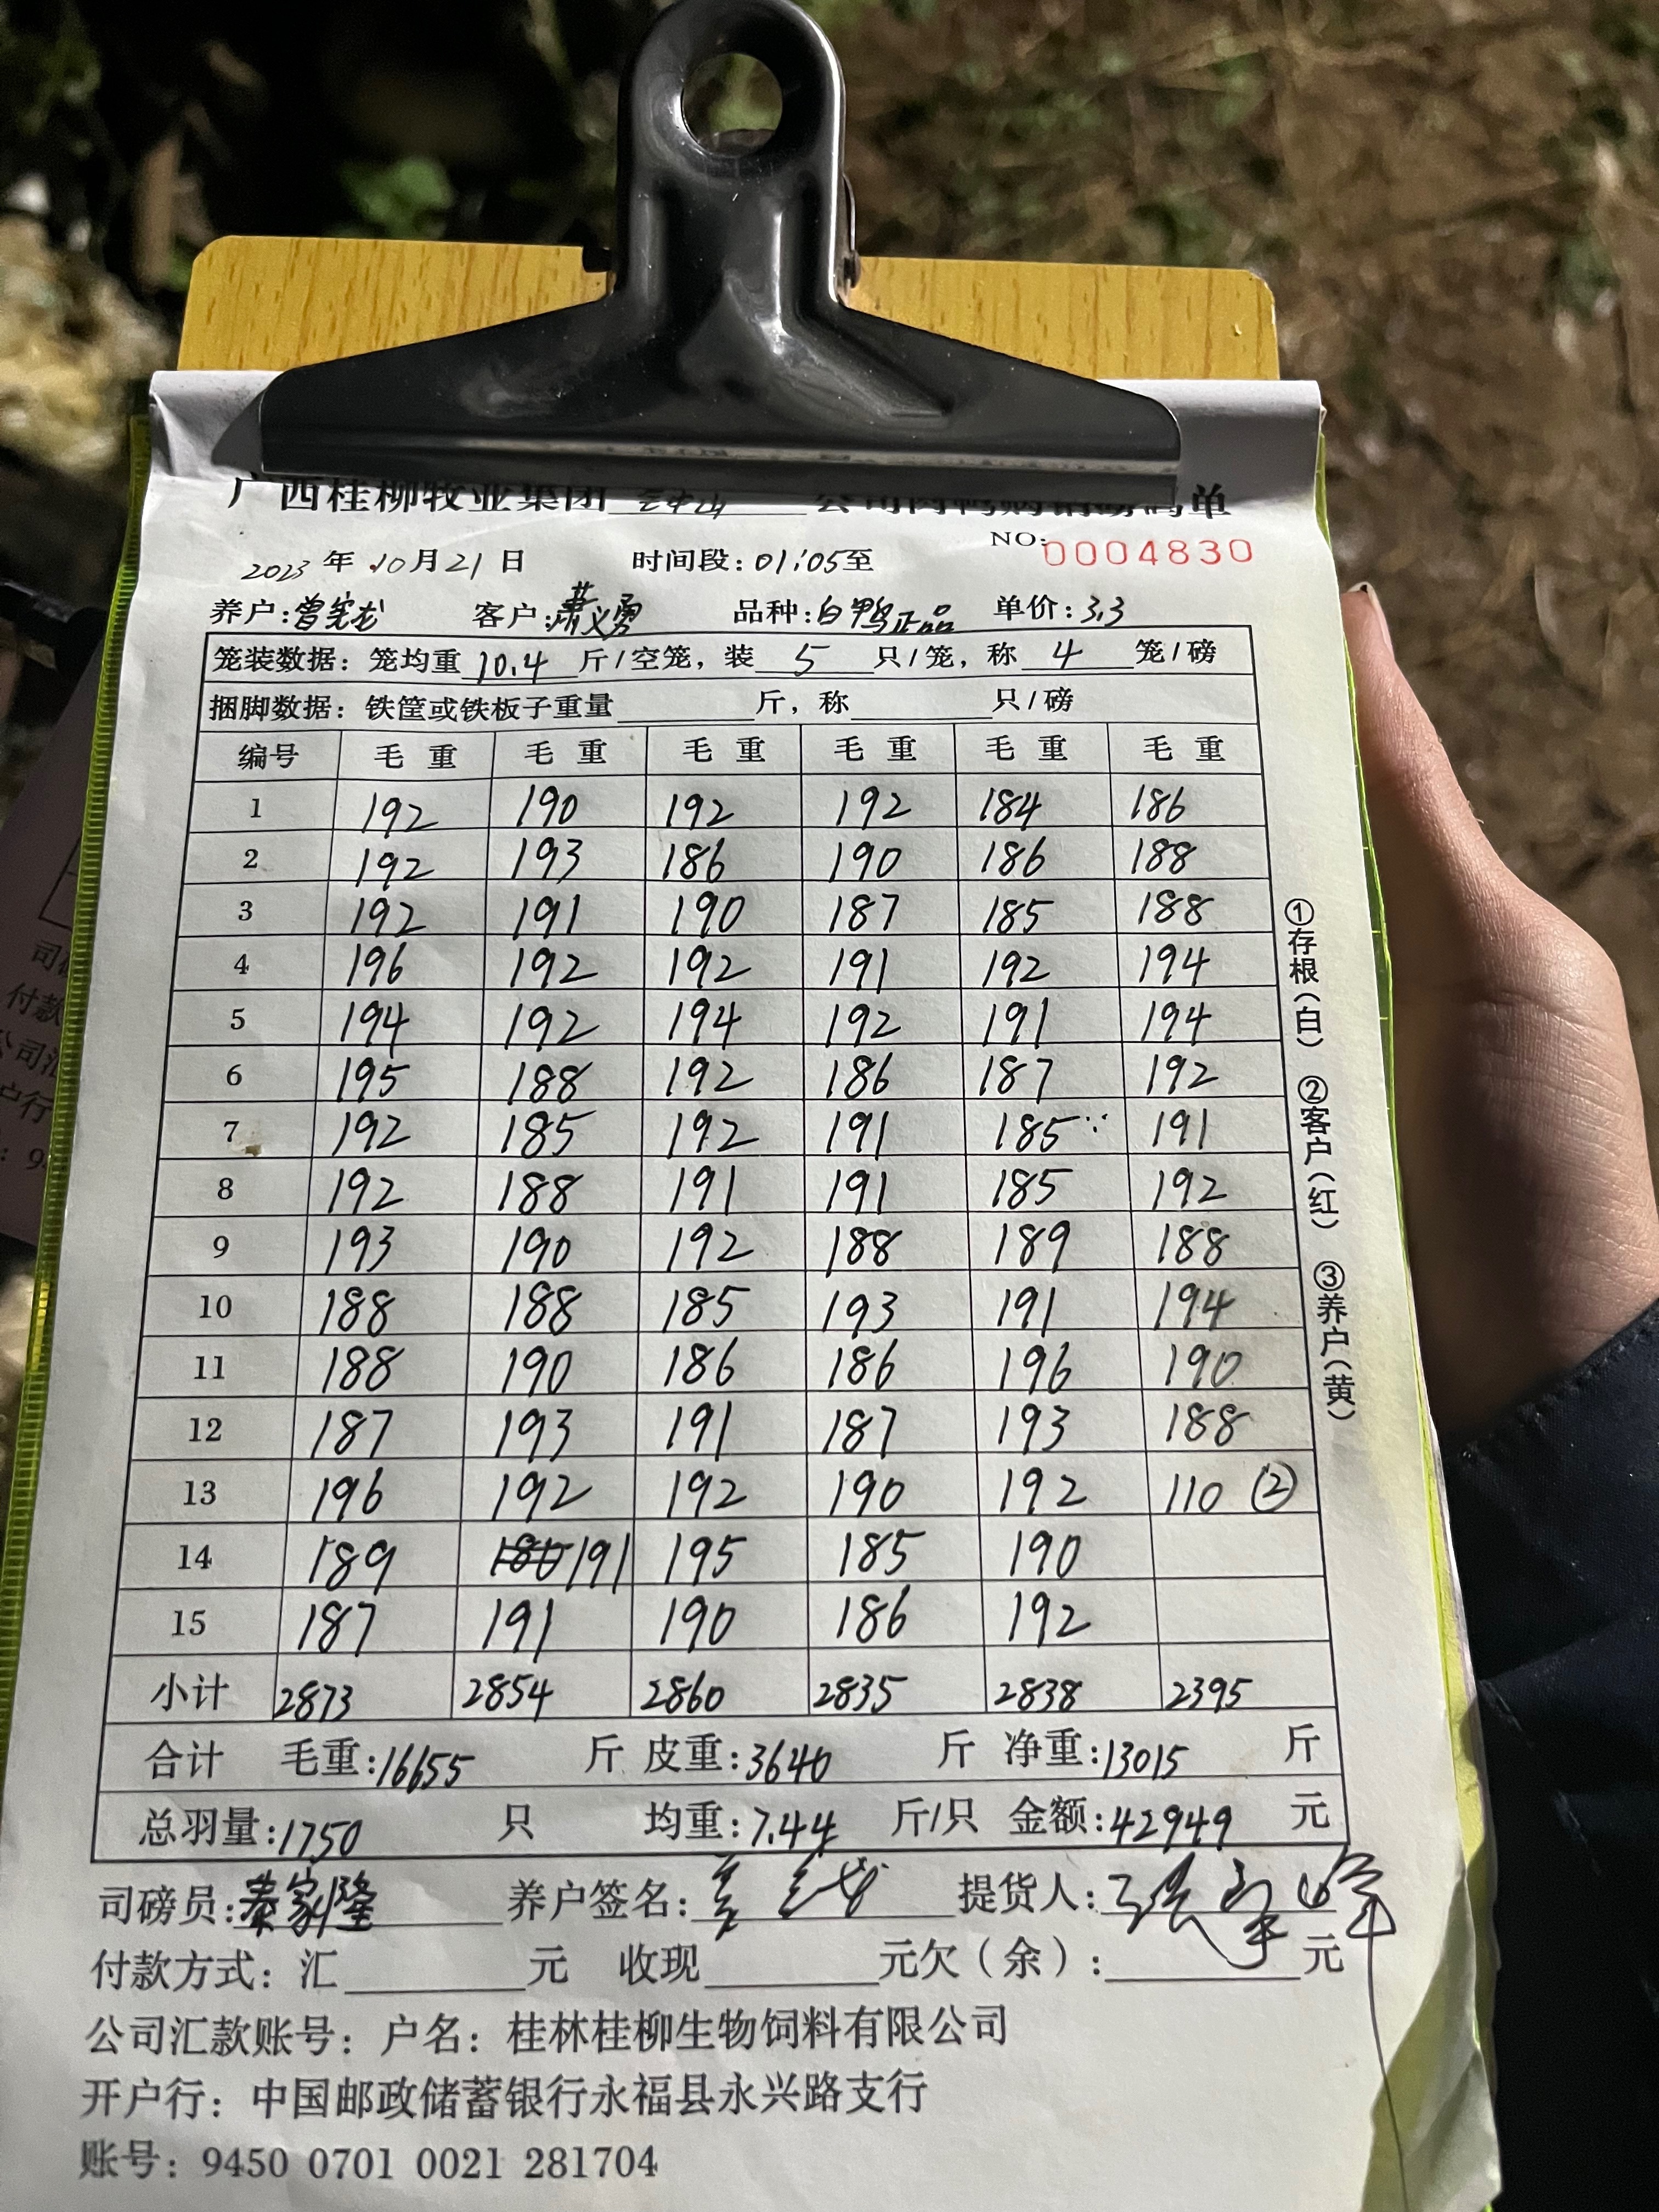 广西桂柳牧业集团 公司肉鸭购销磅码单
NO:0004830
2023 年 10 月 21 日 时间段:01:05至
养户:曾宪龙 客户:萧义勇 品种:白鸭正品 单价:3.3
笼装数据:笼均重 10.4 斤/空笼,装 5 只/笼,称 4 笼/磅
捆脚数据:铁筐或铁板子重量 斤,称 只/磅
编号 毛重 毛重 毛重 毛重 毛重 毛重
1 192 190 192 192 184 186
2 192 193 186 190 186 188
3 192 191 190 187 185 188
4 196 192 192 191 192 194
5 194 192 194 192 191 194
6 195 188 192 186 187 192
7 192 185 192 191 185 191
8 192 188 191 191 185 192
9 193 190 192 188 189 188
10 188 188 185 193 191 194
11 188 190 186 186 196 190
12 187 193 191 187 193 188
13 196 192 192 190 192 110 ②
14 189 191 195 185 190
15 187 191 190 186 192
小计 2873 2854 2860 2835 2838 2395
合计 毛重:16655 斤 皮重:3640 斤 净重:13015 斤
总羽量:1750 只 均重:7.44 斤/只 金额:42949 元
司磅员:秦家隆 养户签名: 提货人:
付款方式:汇 元 收现 元欠(余): 元
公司汇款账号:户名:桂林桂柳生物饲料有限公司
开户行:中国邮政储蓄银行永福县永兴路支行
账号:9450 0701 0021 281704
①存根(白) ②客户(红) ③养户(黄)